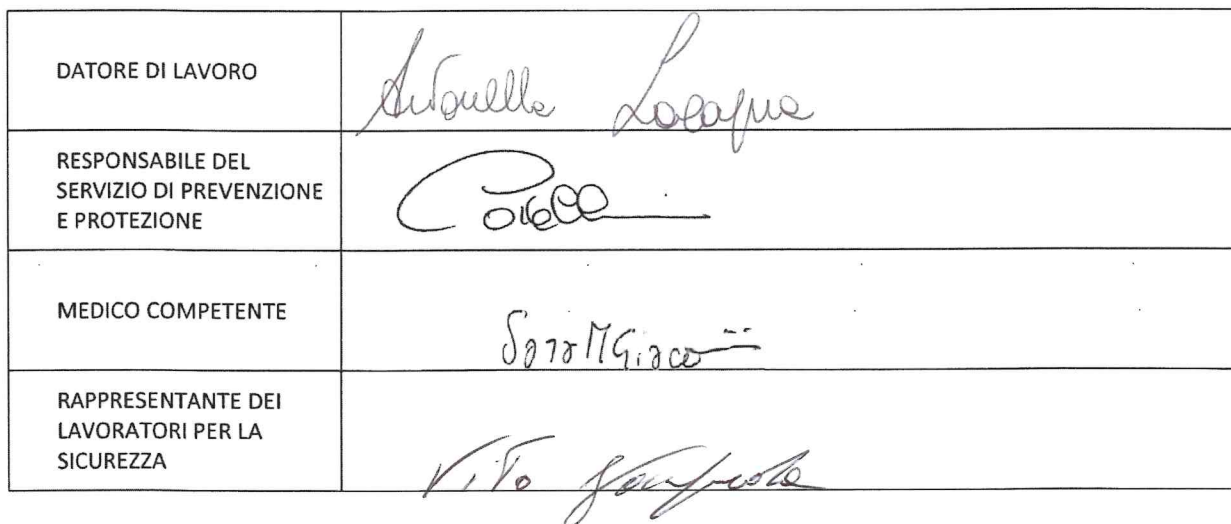 DATORE DI LAVORO
Antonella
RESPONSABILE DEL
SERVIZIO DI PREVENZIONE
E PROTEZIONE
MEDICO COMPETENTE
RAPPRESENTANTE DEI
LAVORATORI PER LA
SICUREZZA
Vito